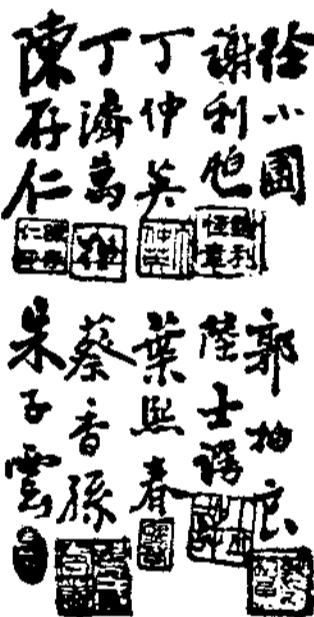 徐小圃
謝利恆
丁仲英
丁濟萬
陳存仁
郭柏良
陸士諤
葉熙春
蔡香蓀
朱子雲